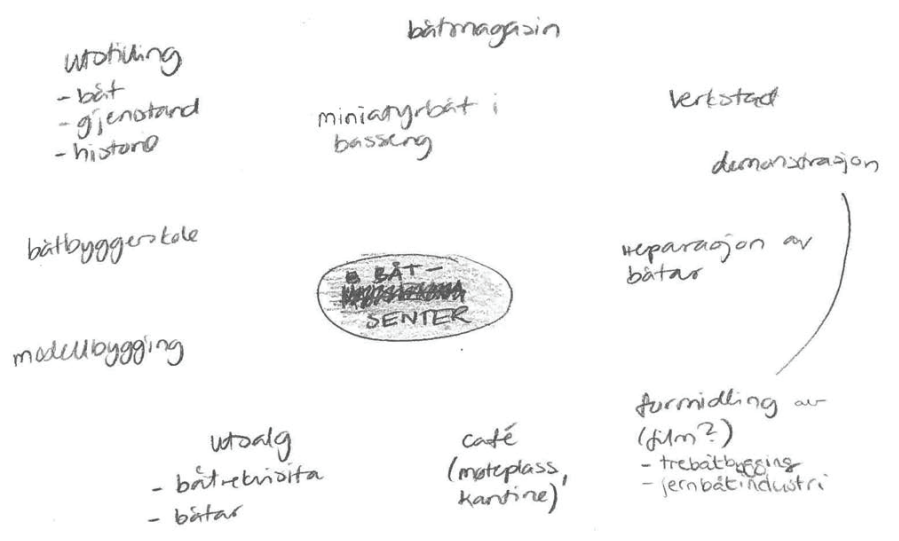 båtmagasin
utstilling
- båt
- gjenstand
- historie
miniatyrbåt i
basseng
Verkstad
demonstrasjon
båtbyggerskole
reparasjon av
båtar
BÅT-
SENTER
modellbygging
formidling av
(film?)
- trebåtbygging
- jernbåtindustri
utsalg
- båtrekvisita
- båtar
café
(møteplass,
kantine)